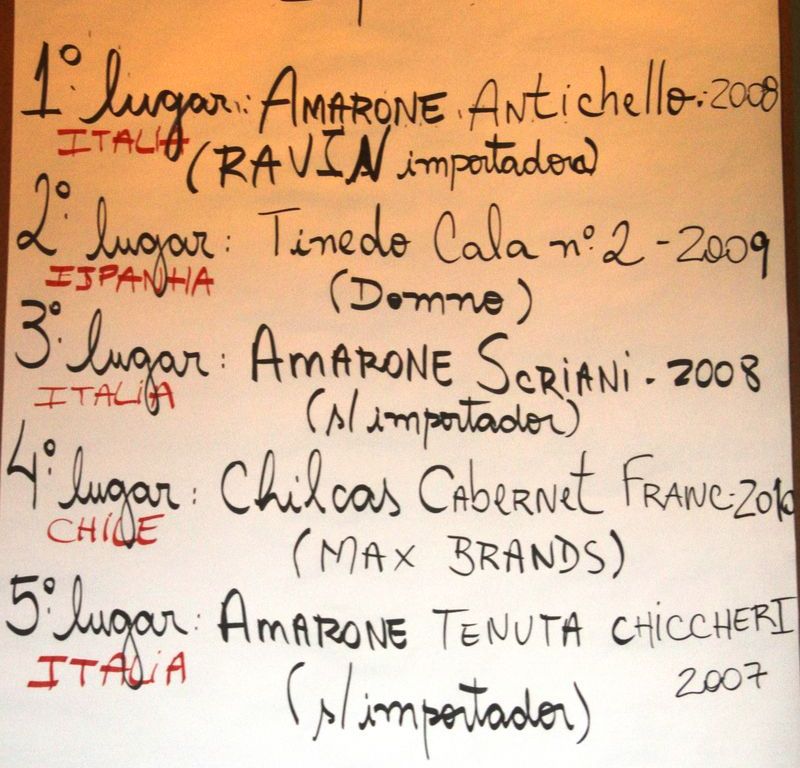 1º lugar: AMARONE Antichello. 2008
ITALIA
(RAVIN importadora)
2º lugar: Tinedo Cala nº 2 - 2009
ISPANHA
(Domno)
3º lugar: AMARONE SCRIANI - 2008
ITALIA
(s/ importador)
4º lugar: Chilcas CABERNET FRANC - 2010
CHILE
(MAX BRANDS)
5º lugar: AMARONE TENUTA CHICCHERI
ITALIA
2007
(s/ importador)